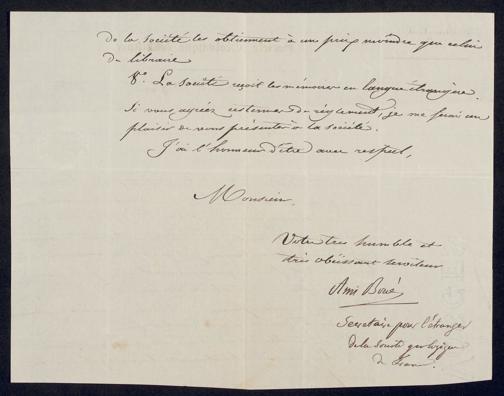 de la Société les obtiennent à un prix moindre que celui
du libraire
8.o La Société reçoit les mémoires en langue étrangère.
Si vous agréez ces termes du règlement, je me ferai un
plaisir de vous présenter à la société.
J'ai l'honneur d'être avec respect,
Monsieur,
Votre très humble et
très obéissant serviteur
Ami Boué
Secrétaire pour l'étranger
de la Société géologique
de France.